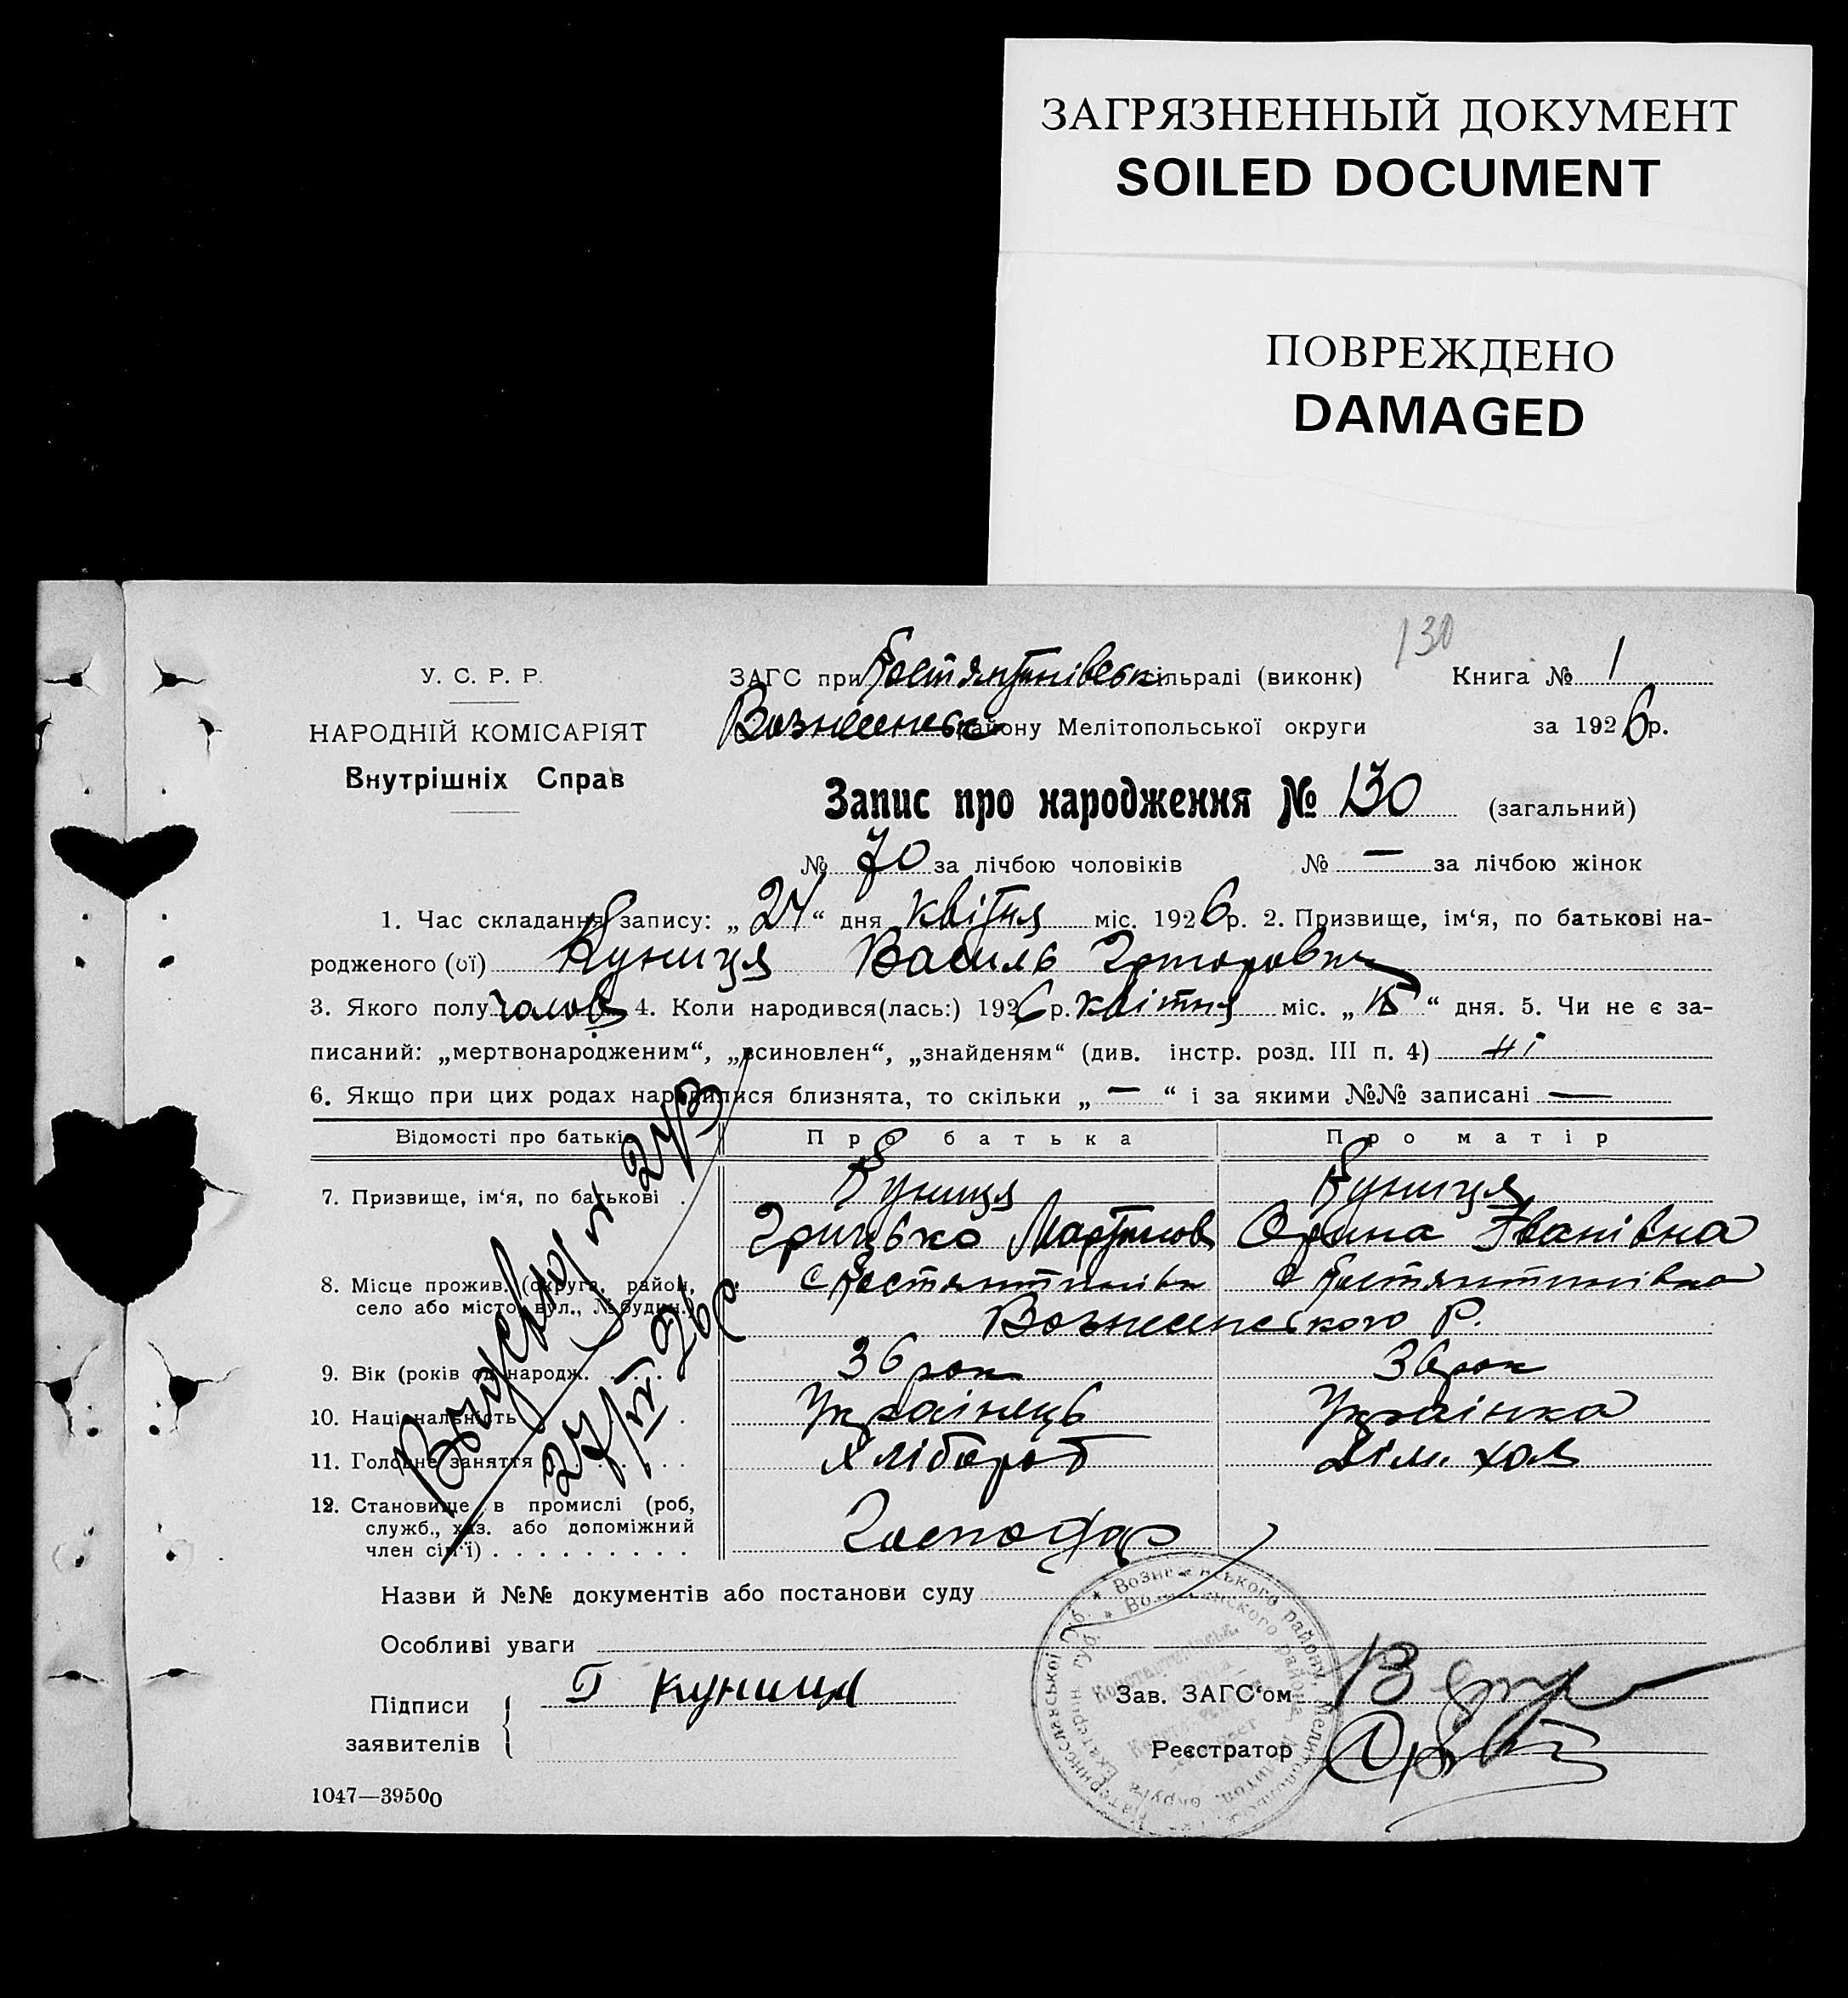 ЗАГРЯЗНЕННЫЙ ДОКУМЕНТ
SOILED DOCUMENT
ПОВРЕЖДЕНО
DAMAGED
130
У. С. Р. Р.
НАРОДНІЙ КОМІСАРІЯТ
Внутрішніх Справ
ЗАГС при Костянтинівськ сільраді (виконк) Книга № 1
Вознесенськ району Мелітопольської округи за 1926 р.
Запис про народження № 130 (загальний)
№ 70 за лічбою чоловіків № — за лічбою жінок
1. Час складання запису: „24“ дня квітня міс. 1926 р. 2. Призвище, ім‘я, по батькові на-
родженого (ої) Куниця Василь
3. Якого полу чолов 4. Коли народився(лась:) 1926 р. квітня міс. „15“ дня. 5. Чи не є за-
писаний: „мертвонародженим“, „всиновлен“, „знайденям“ (див. інстр. розд. III п. 4) ні
6. Якщо при цих родах народилися близнята, то скільки „—“ і за якими №№ записані —
Відомості про батьків Про батька Про матір
7. Призвище, ім‘я, по батькові . Куниця Куниця
Грицько Мартинов Орина Іванівна
8. Місце прожив. (округа, район, с Костянтинівка с Костянтинівка
село або місто, вул., № будин.) Вознесенського Р.
9. Вік (років од народж. . . . . 36 рок 36 рок
10. Національність . Українець Українка
11. Головне заняття . . . . Хлібороб Дім. хоз
12. Становище в промислі (роб,
служб., хаз. або допоміжний
член сім‘ї) . . . . . . . . . Господар
Назви й №№ документів або постанови суду
Особливі уваги
Підписи Г Куниця Зав. ЗАГС‘ом
заявителів Реєстратор
1047—39500